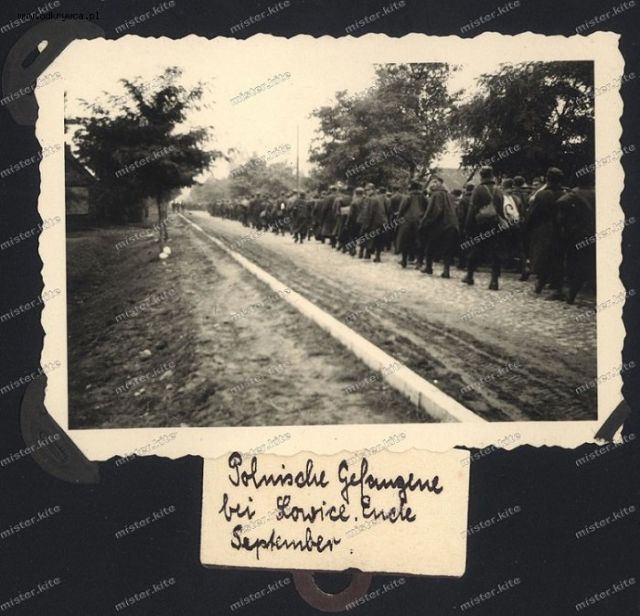 www.odkrywca.pl
Polnische Gefangene
bei Lowice. Ende
September.
mister.kite